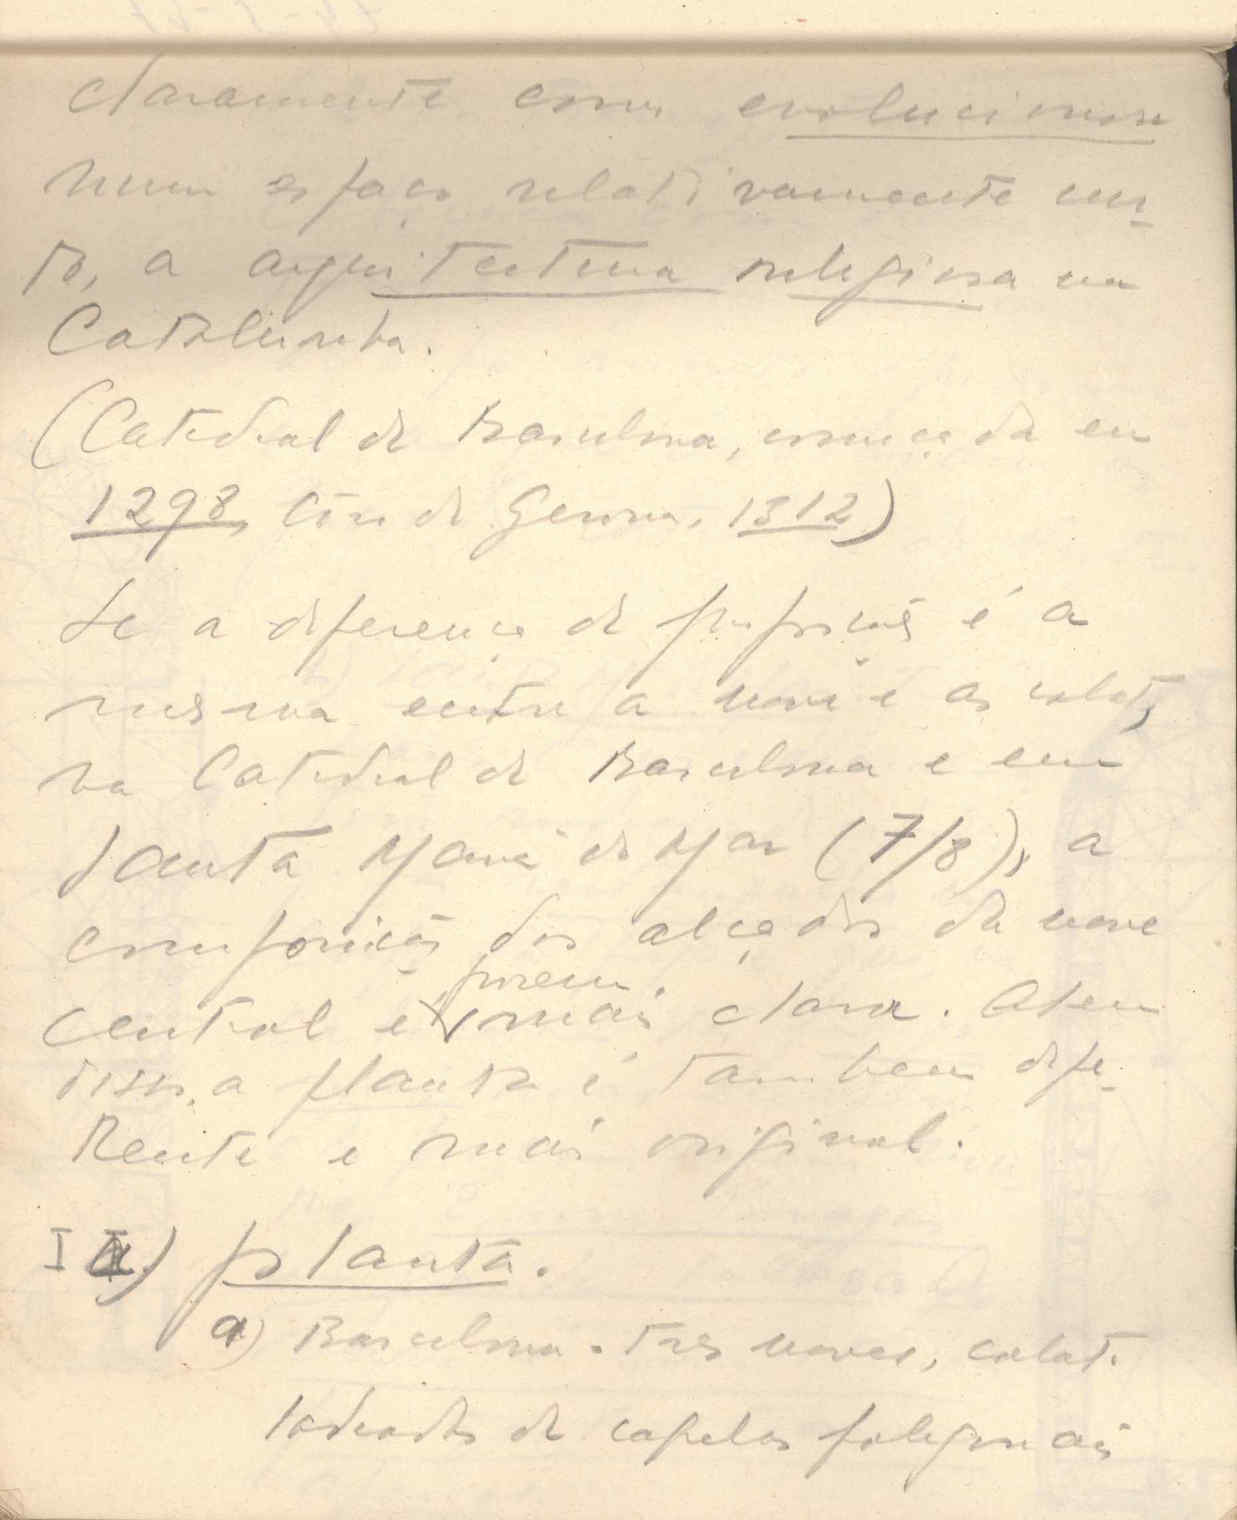 claramente como evolucionou
num espaço relativamente cur-
to, a arquitectura religiosa na
Catalunha.
(Catedral de Barcelona, começada em
1298, Côro de Gerona, 1312)
Se a diferença de proporções é a
mesma entre a nave e as colat,
na Catedral de Barcelona e em
Santa Maria do Mar (7/8), a
composição dos alçados da nave
porem
central é mais clara. Alem
disso, a planta é tambem dife-
rente e mais original.
II) planta.
a) Barcelona. Três naves, colat.
ladeadas de capelas poligonais